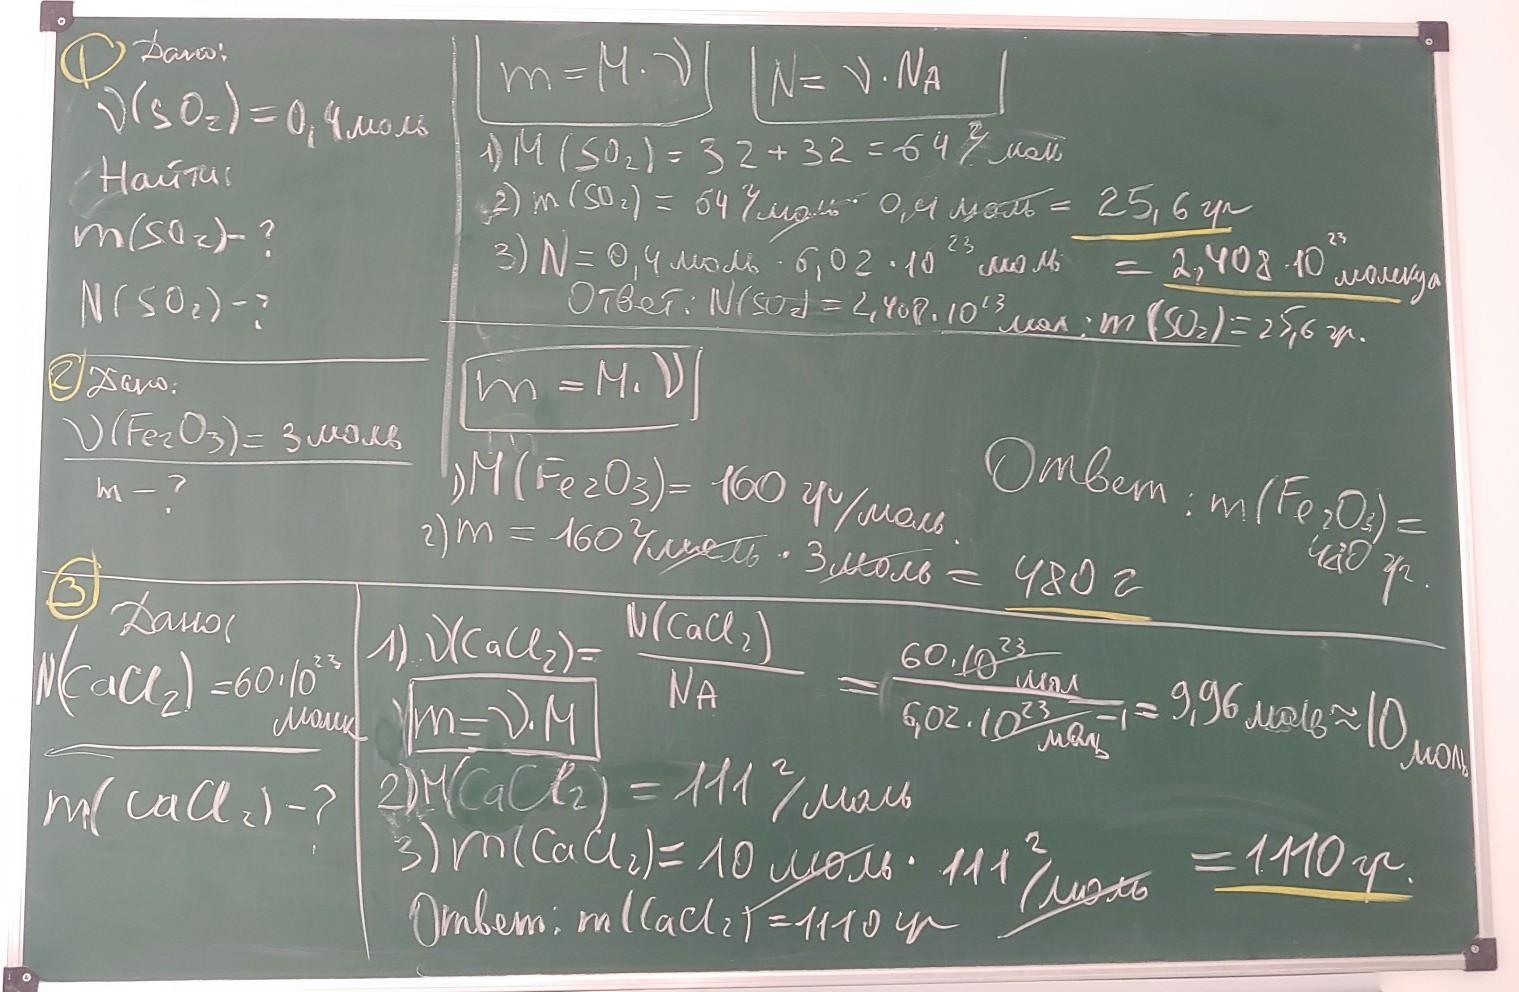 ① Дано:
ν(SO₂) = 0,4 моль
Найти:
m(SO₂) - ?
N(SO₂) - ?
m = M · ν
N = ν · NA
1) M (SO₂) = 32 + 32 = 64 г/моль
2) m (SO₂) = 64 г/моль · 0,4 моль = 25,6 гр
3) N = 0,4 моль · 6,02 · 10²³ моль = 2,408 · 10²³ молекул
Ответ: N(SO₂) = 2,408 · 10²³ мол; m (SO₂) = 25,6 гр.
② Дано:
ν(Fe₂O₃) = 3 моль
m - ?
m = M · ν
1) M (Fe₂O₃) = 160 гр/моль.
2) m = 160 г/моль · 3 моль = 480 г
Ответ: m (Fe₂O₃) =
480 гр.
③ Дано:
N(CaCl₂) = 60 · 10²³
молек
m(CaCl₂) - ?
1) ν(CaCl₂) = N(CaCl₂) / NA = 60 · 10²³ мол / 6,02 · 10²³ моль⁻¹ = 9,96 моль ≈ 10 моль
m = ν · M
2) M(CaCl₂) = 111 г/моль
3) m(CaCl₂) = 10 моль · 111 г/моль = 1110 гр.
Ответ: m(CaCl₂) = 1110 гр